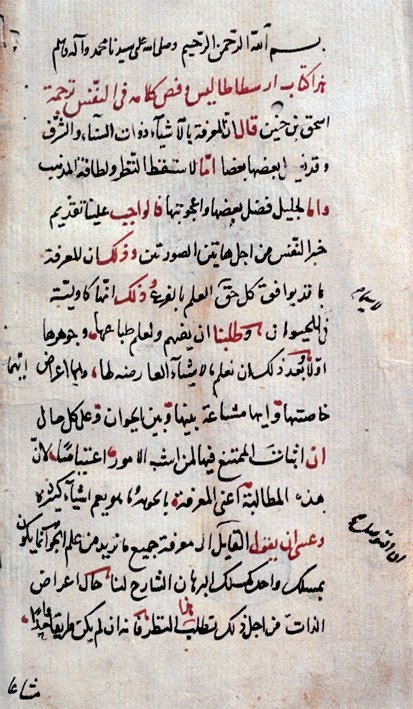 بسم الله الرحمن الرحيم وصلى الله على سيدنا محمد وآله وسلم
هذا كتاب ارسطاطاليس وفص كلامه فى النفس ترجمة
اسحق بن حنين قال ان المعرفة بالاشيآء ذوات السناء والشرف
وقد بعضها بعضا امّا لاستقصا النظر ولطافة المذهب
وامالجليل فضل بعضها واعجوبتها فالواجب علينا تقديم
خبر النفس من اجل هاتين الصورتين وذلك ان للمعرفة
بها قد يوافق كل حق العلم بالغريزة وذلك انها كاوليّة
فى الحيوان وطلبنا ان نفهم ولعلم طباعها وجوهرها
اولا وبعد ذلك ان نعلم الاشيآء العارضة لها وايما اعراض انها
خاصتها وايها مشاعة بينها وبين الحيوان وعلى كل حال
ان اثبات الممتنع فيها لمن اشد الامور اعتياصا لانّ
هذه المطالبة اعنى المعرفة بالجوهر يعم اشيآء كثيرة
وعسى ان يقول القايل ان معرفة جميع ما نريد من علم الجواهر انما يكون
بمسلك واحد كمسلك البرهان الشارح لنا حال اعراض
الذات من اجل ذلك تطلب هذا النظر فانه ان لم يكن طريقا واحدا
مشاعا